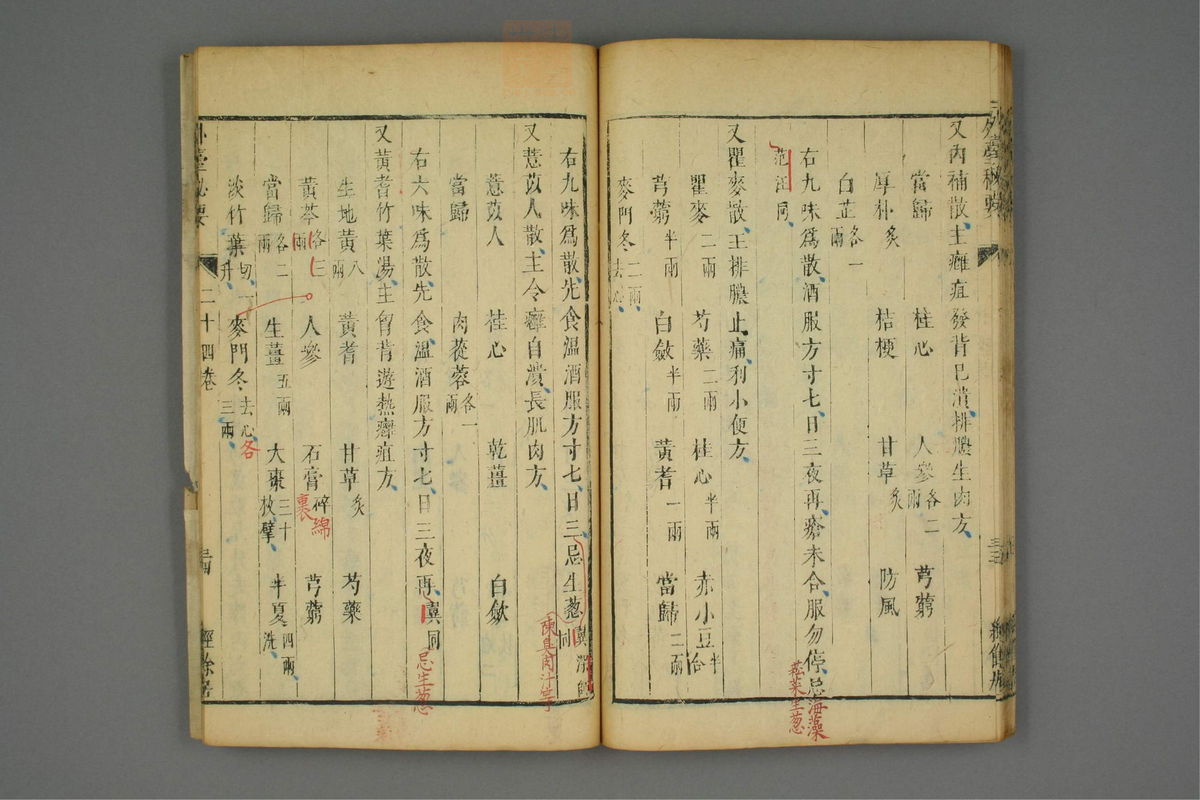 外臺秘要
又內補散主癰疽發背已潰排膿生肉方
當歸 桂心 人參各二兩 芎藭
厚朴炙 桔梗 甘草炙 防風
白芷各一兩
右九味爲散酒服方寸匕日三夜再瘡未合服勿停忌海藻
菘菜生葱
范汪同
又瞿麥散主排膿止痛利小便方
瞿麥二兩 芍藥二兩 桂心半兩 赤小豆半合
芎藭半兩 白斂半兩 黃耆一兩 當歸二兩
麥門冬二兩去心
右九味爲散先食溫酒服方寸匕日三忌生葱
陳臭肉汁等
又薏苡人散主令癰自潰長肌肉方
薏苡人 桂心 乾薑 白斂
當歸 肉蓯蓉各一兩
右六味爲散先食溫酒服方寸匕日三夜再冀同
忌生葱
又黃耆竹葉湯主胷背遊熱癰疽方
生地黃八兩 黃耆 甘草炙 芍藥
黃芩各三兩 人參 石膏碎綿裹 芎藭
當歸各二兩 生薑五兩 大棗三十枚擘 半夏四兩洗
淡竹葉切一升 麥門冬去心三兩各
外臺秘要 二十四卷 經餘居